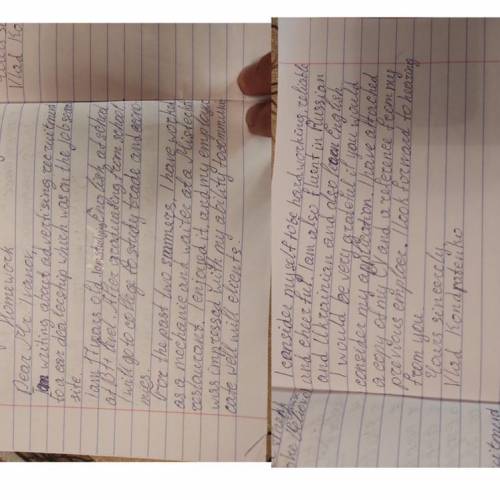 Homework
Dear Mr Ivanov
am writing about advertising recruitment
to a car dealership which was on the job search
site
I am 17 years old English at school
at B1+ level. After graduating from school
I will go to college to study trade and
mics
For the past two summers I have worked
as a mechanic and waiter at a
restaurant. I enjoyed it and my employer
was impressed with my ability to communi
cate well with clients.
I consider myself to be hard working, reliable
and cheerful. I am also fluent in Russian
and Ukrainian and also learn English
I would be very grateful if you would
consider my application. I have attached
a copy of my CV and a reference from my
previous emploer. I look forward to hearing
from you
Yours sincerely,
Vlad Kondratenko